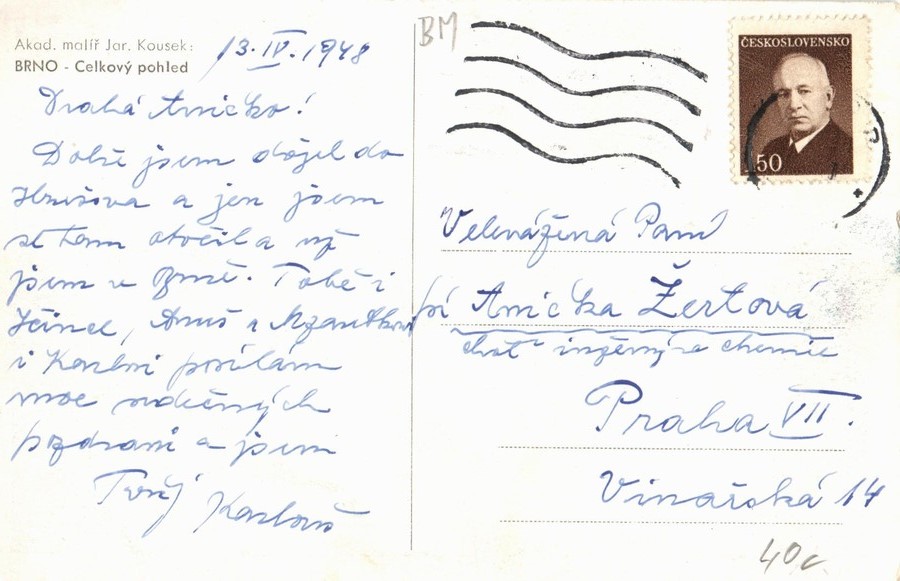 Akad. malíř Jar. Kousek:
BRNO - Celkový pohled
13.IV.1948
Drahá Aničko!
Dobře jsem dojel do
a jen jsem
se tam otočil a už
jsem v Brně. Tobě i
i Karlovi posílám
moc srdečných
pozdravů a jsem
Tvůj
Karlouš
BM
ČESKOSLOVENSKO
50
Velevážená Paní
pí Anička Žertová
choť inženýra chemie
Praha VII.
Vinařská 14
40c